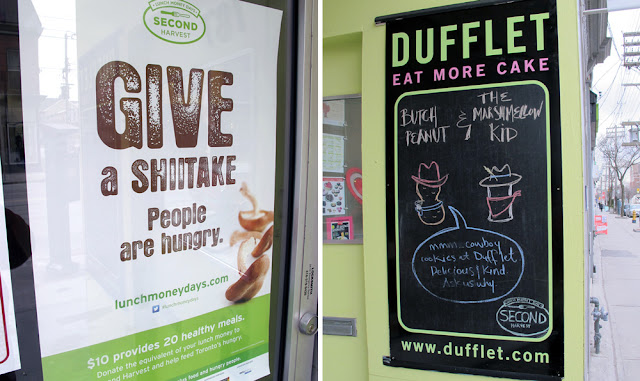 LUNCH MONEY DAYS
SECOND
HARVEST
GIVE
a SHIITAKE
People
are hungry.
lunchmoneydays.com
#lunchmoneydays
$10 provides 20 healthy meals.
Donate the equivalent of your lunch money to
Second Harvest and help feed Toronto's hungry.
food and hungry people.
DUFFLET
EAT MORE CAKE
BUTCH
PEANUT
&
THE
MARSHMELLOW
KID
mmm...cowboy
cookies at Dufflet
Delicious/Kind.
Ask us why.
LUNCH MONEY DAYS
SECOND
HARVEST
www.dufflet.com